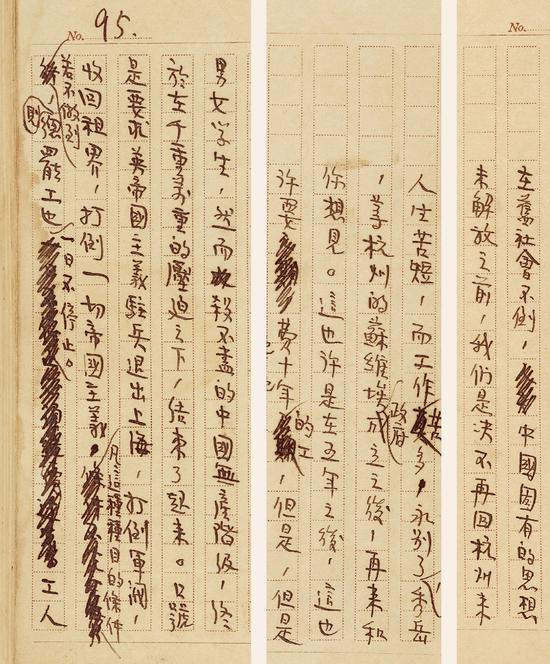 No.
在舊社會不倒，中國固有的思想
未解放之前，我們是决不再回杭州来
人生苦短，而工作苦多，永别了禾岳
，等杭州的蘇維埃政府成立之後，再来和
你想見。這也许是在五年之後，這也
许要费十年的工，但是，但是
No. 95.
男女学生，然而殺不盡的中國無產階级，终
於在千重萬重的壓迫之下，结束了起来。口號
是要求英帝國主義駐兵退出上海，打倒軍阀，
收回租界，打倒一切帝國主義。凡這種種目的條件
若不做到，则總罷工也一日不停止。工人